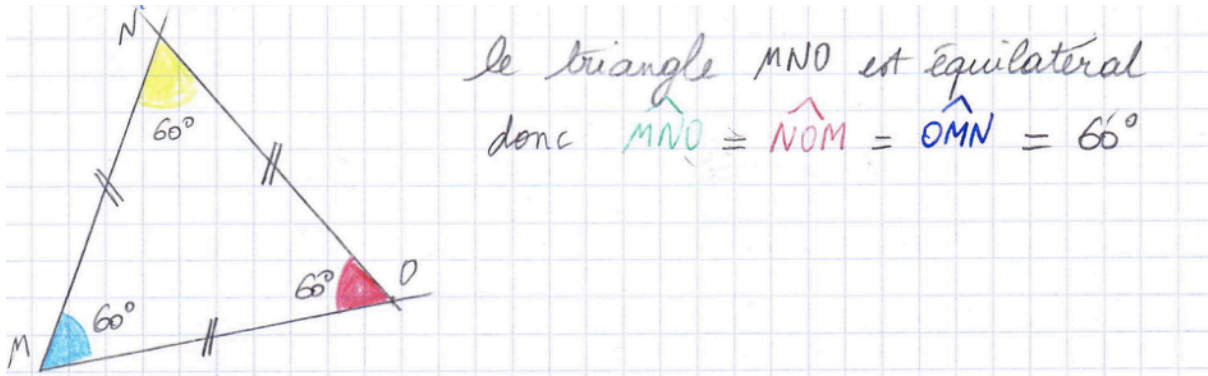 N
60°
M
60°
60°
O
le triangle MNO est équilatéral
donc M̂NO = N̂OM = ÔMN = 60°